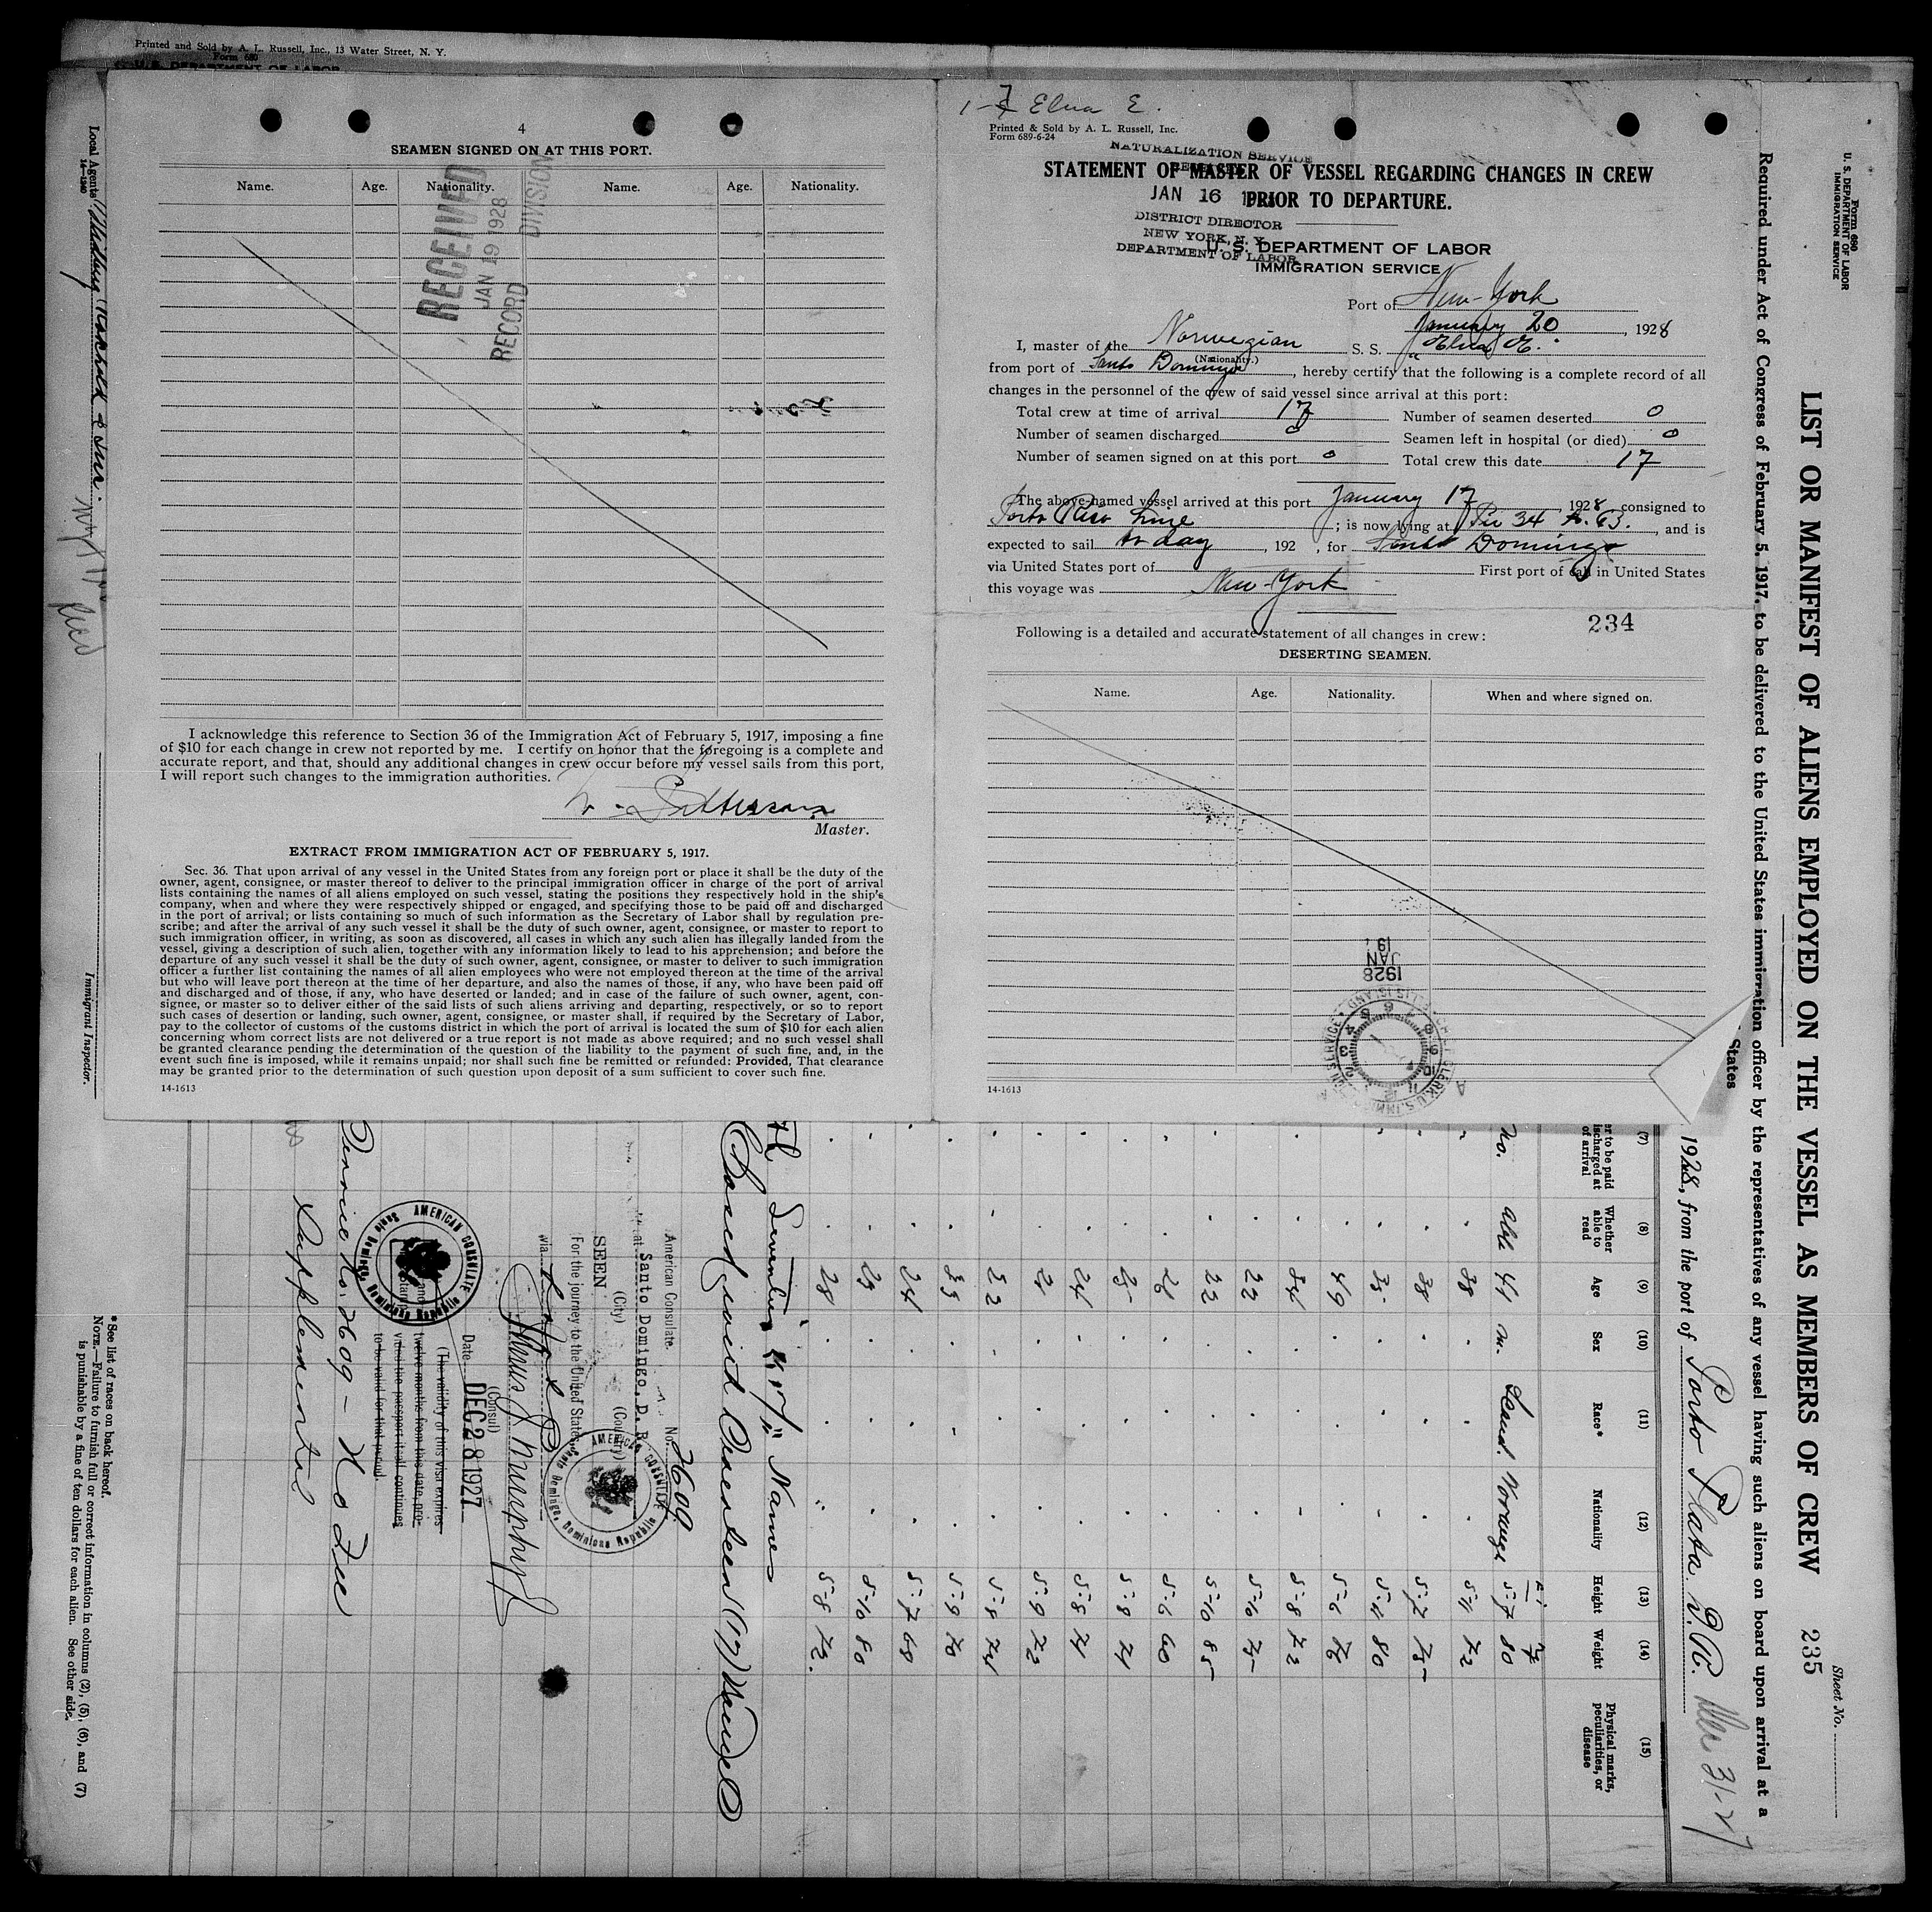 Printed and Sold by A. L. Russell, Inc., 13 Water Street, N. Y.
Form 680
U. S. DEPARTMENT OF LABOR
4
SEAMEN SIGNED ON AT THIS PORT.
Name. Age. Nationality. Name. Age. Nationality.
RECEIVED
JAN 19 1928
RECORD DIVISION
I acknowledge this reference to Section 36 of the Immigration Act of February 5, 1917, imposing a fine
of $10 for each change in crew not reported by me. I certify on honor that the foregoing is a complete and
accurate report, and that, should any additional changes in crew occur before my vessel sails from this port,
I will report such changes to the immigration authorities.
Master.
EXTRACT FROM IMMIGRATION ACT OF FEBRUARY 5, 1917.
Sec. 36. That upon arrival of any vessel in the United States from any foreign port or place it shall be the duty of the
owner, agent, consignee, or master thereof to deliver to the principal immigration officer in charge of the port of arrival
lists containing the names of all aliens employed on such vessel, stating the positions they respectively hold in the ship's
company, when and where they were respectively shipped or engaged, and specifying those to be paid off and discharged
in the port of arrival; or lists containing so much of such information as the Secretary of Labor shall by regulation pre-
scribe; and after the arrival of any such vessel it shall be the duty of such owner, agent, consignee, or master to report to
such immigration officer, in writing, as soon as discovered, all cases in which any such alien has illegally landed from the
vessel, giving a description of such alien, together with any information likely to lead to his apprehension; and before the
departure of any such vessel it shall be the duty of such owner, agent, consignee, or master to deliver to such immigration
officer a further list containing the names of all alien employees who were not employed thereon at the time of the arrival
but who will leave port thereon at the time of her departure, and also the names of those, if any, who have been paid off
and discharged and of those, if any, who have deserted or landed; and in case of the failure of such owner, agent, con-
signee, or master so to deliver either of the said lists of such aliens arriving and departing, respectively, or so to report
such cases of desertion or landing, such owner, agent, consignee, or master shall, if required by the Secretary of Labor,
pay to the collector of customs of the customs district in which the port of arrival is located the sum of $10 for each alien
concerning whom correct lists are not delivered or a true report is not made as above required; and no such vessel shall
be granted clearance pending the determination of the question of the liability to the payment of such fine, and, in the
event such fine is imposed, while it remains unpaid; nor shall such fine be remitted or refunded: Provided, That clearance
may be granted prior to the determination of such question upon deposit of a sum sufficient to cover such fine.
14-1613
1-7 Elna E.
Printed & Sold by A. L. Russell, Inc.
Form 689-6-24
NATURALIZATION SERVICE
STATEMENT OF MASTER OF VESSEL REGARDING CHANGES IN CREW
PRIOR TO DEPARTURE.
JAN 16
DISTRICT DIRECTOR
NEW YORK, N. Y.
DEPARTMENT OF LABOR
U. S. DEPARTMENT OF LABOR
IMMIGRATION SERVICE
Port of New-York
January 20, 1928
I, master of the Norwegian S. S. "Elna E."
(Nationality.)
from port of Santo Domingo, hereby certify that the following is a complete record of all
changes in the personnel of the crew of said vessel since arrival at this port:
Total crew at time of arrival 17 Number of seamen deserted 0
Number of seamen discharged 0 Seamen left in hospital (or died) 0
Number of seamen signed on at this port 0 Total crew this date 17
The above-named vessel arrived at this port January 17, 1928, consigned to
Porto Rico Line; is now lying at Pier 34 , and is
expected to sail to day, 192 , for Santo Domingo
via United States port of First port of call in United States
this voyage was New-York
234
Following is a detailed and accurate statement of all changes in crew:
DESERTING SEAMEN.
Name. Age. Nationality. When and where signed on.
1928
JAN
19
14-1613
Form 680
U. S. DEPARTMENT OF LABOR
IMMIGRATION SERVICE
Sheet No.
LIST OR MANIFEST OF ALIENS EMPLOYED ON THE VESSEL AS MEMBERS OF CREW 235
Required under Act of Congress of February 5, 1917, to be delivered to the United States immigration officer by the representatives of any vessel having such aliens on board upon arrival at a
States
1928, from the port of Porto Plata D.R. Dec 31-27
(7) (8) (9) (10) (11) (12) (13) (14) (15)
er to be paid
ischarged at
of arrival
Whether
able to
read
Age
Sex
Race*
Nationality
Height
Weight
Physical marks,
peculiarities, or
disease
No. able 41 m. Scand. Norwege 5-7 80
38 5-11 72
38 5-7 75
35 5-11 80
49 5-6 76
34 5-8 72
22 5-10 75
22 5-10 85
26 5-6 60
25 5-8 71
24 5-8 71
5-9 72
22 5-8 74
33 5-9 70
24 5-7 68
29 5-10 80
28 5-8 73.
Seventeen "17" Names
No. 2609
American Consulate.
at Santo Domingo, D. R.
(City) (Country)
SEEN
For the journey to the United States
via
(Consul)
Date DEC 28 1927
(The validity of this visa expires
twelve months from this date, pro-
vided the passport itself continues
to be valid for that period.
AMERICAN CONSULATE
Santo Domingo, Dominican Republic
AMERICAN CONSULATE
Santo Domingo, Dominican Republic
Service No. 2609 - No Fee
Supplemental
Local Agents
14-1240
Immigrant Inspector.
* See list of races on back hereof.
NOTE.—Failure to furnish full or correct information in columns (2), (5), (6), and (7)
is punishable by a fine of ten dollars for each alien. See other side.